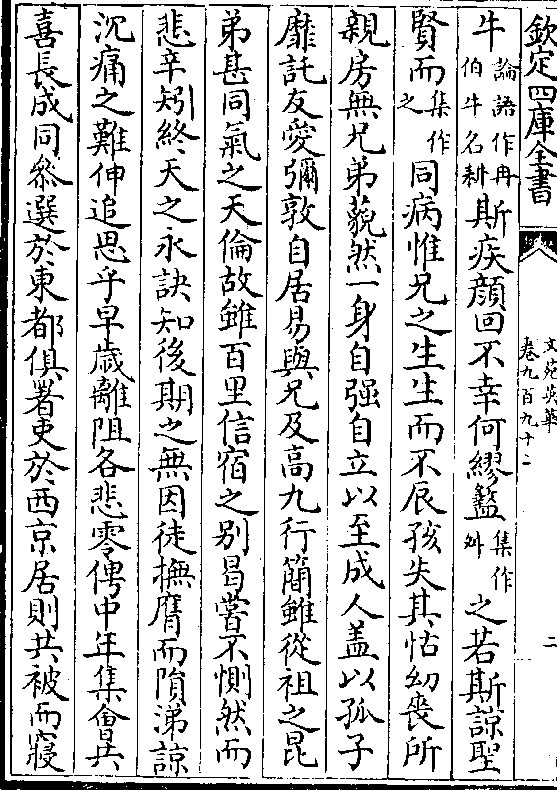 欽定四庫全書
文苑英華
卷九百九十二
二
牛論語作冉伯牛名耕斯疾顔回不幸何繆盭集作糾之若斯諒聖
賢而集作之同病惟兄之生生而不辰孩失其怙幼喪所
親房無兄弟藐然一身自强自立以至成人盖以孤子
靡託友愛彌敦自居易與兄及高九行簡雖從祖之昆
弟甚同氣之天倫故雖百里信宿之别曷嘗不惻然而
悲辛矧終天之永訣知後期之無因徒撫膺而隕涕諒
沉痛之難伸追思乎早歲離阻各悲零偶中年集會共
喜長成同叅選於東都俱署吏於西京居則共被而寢